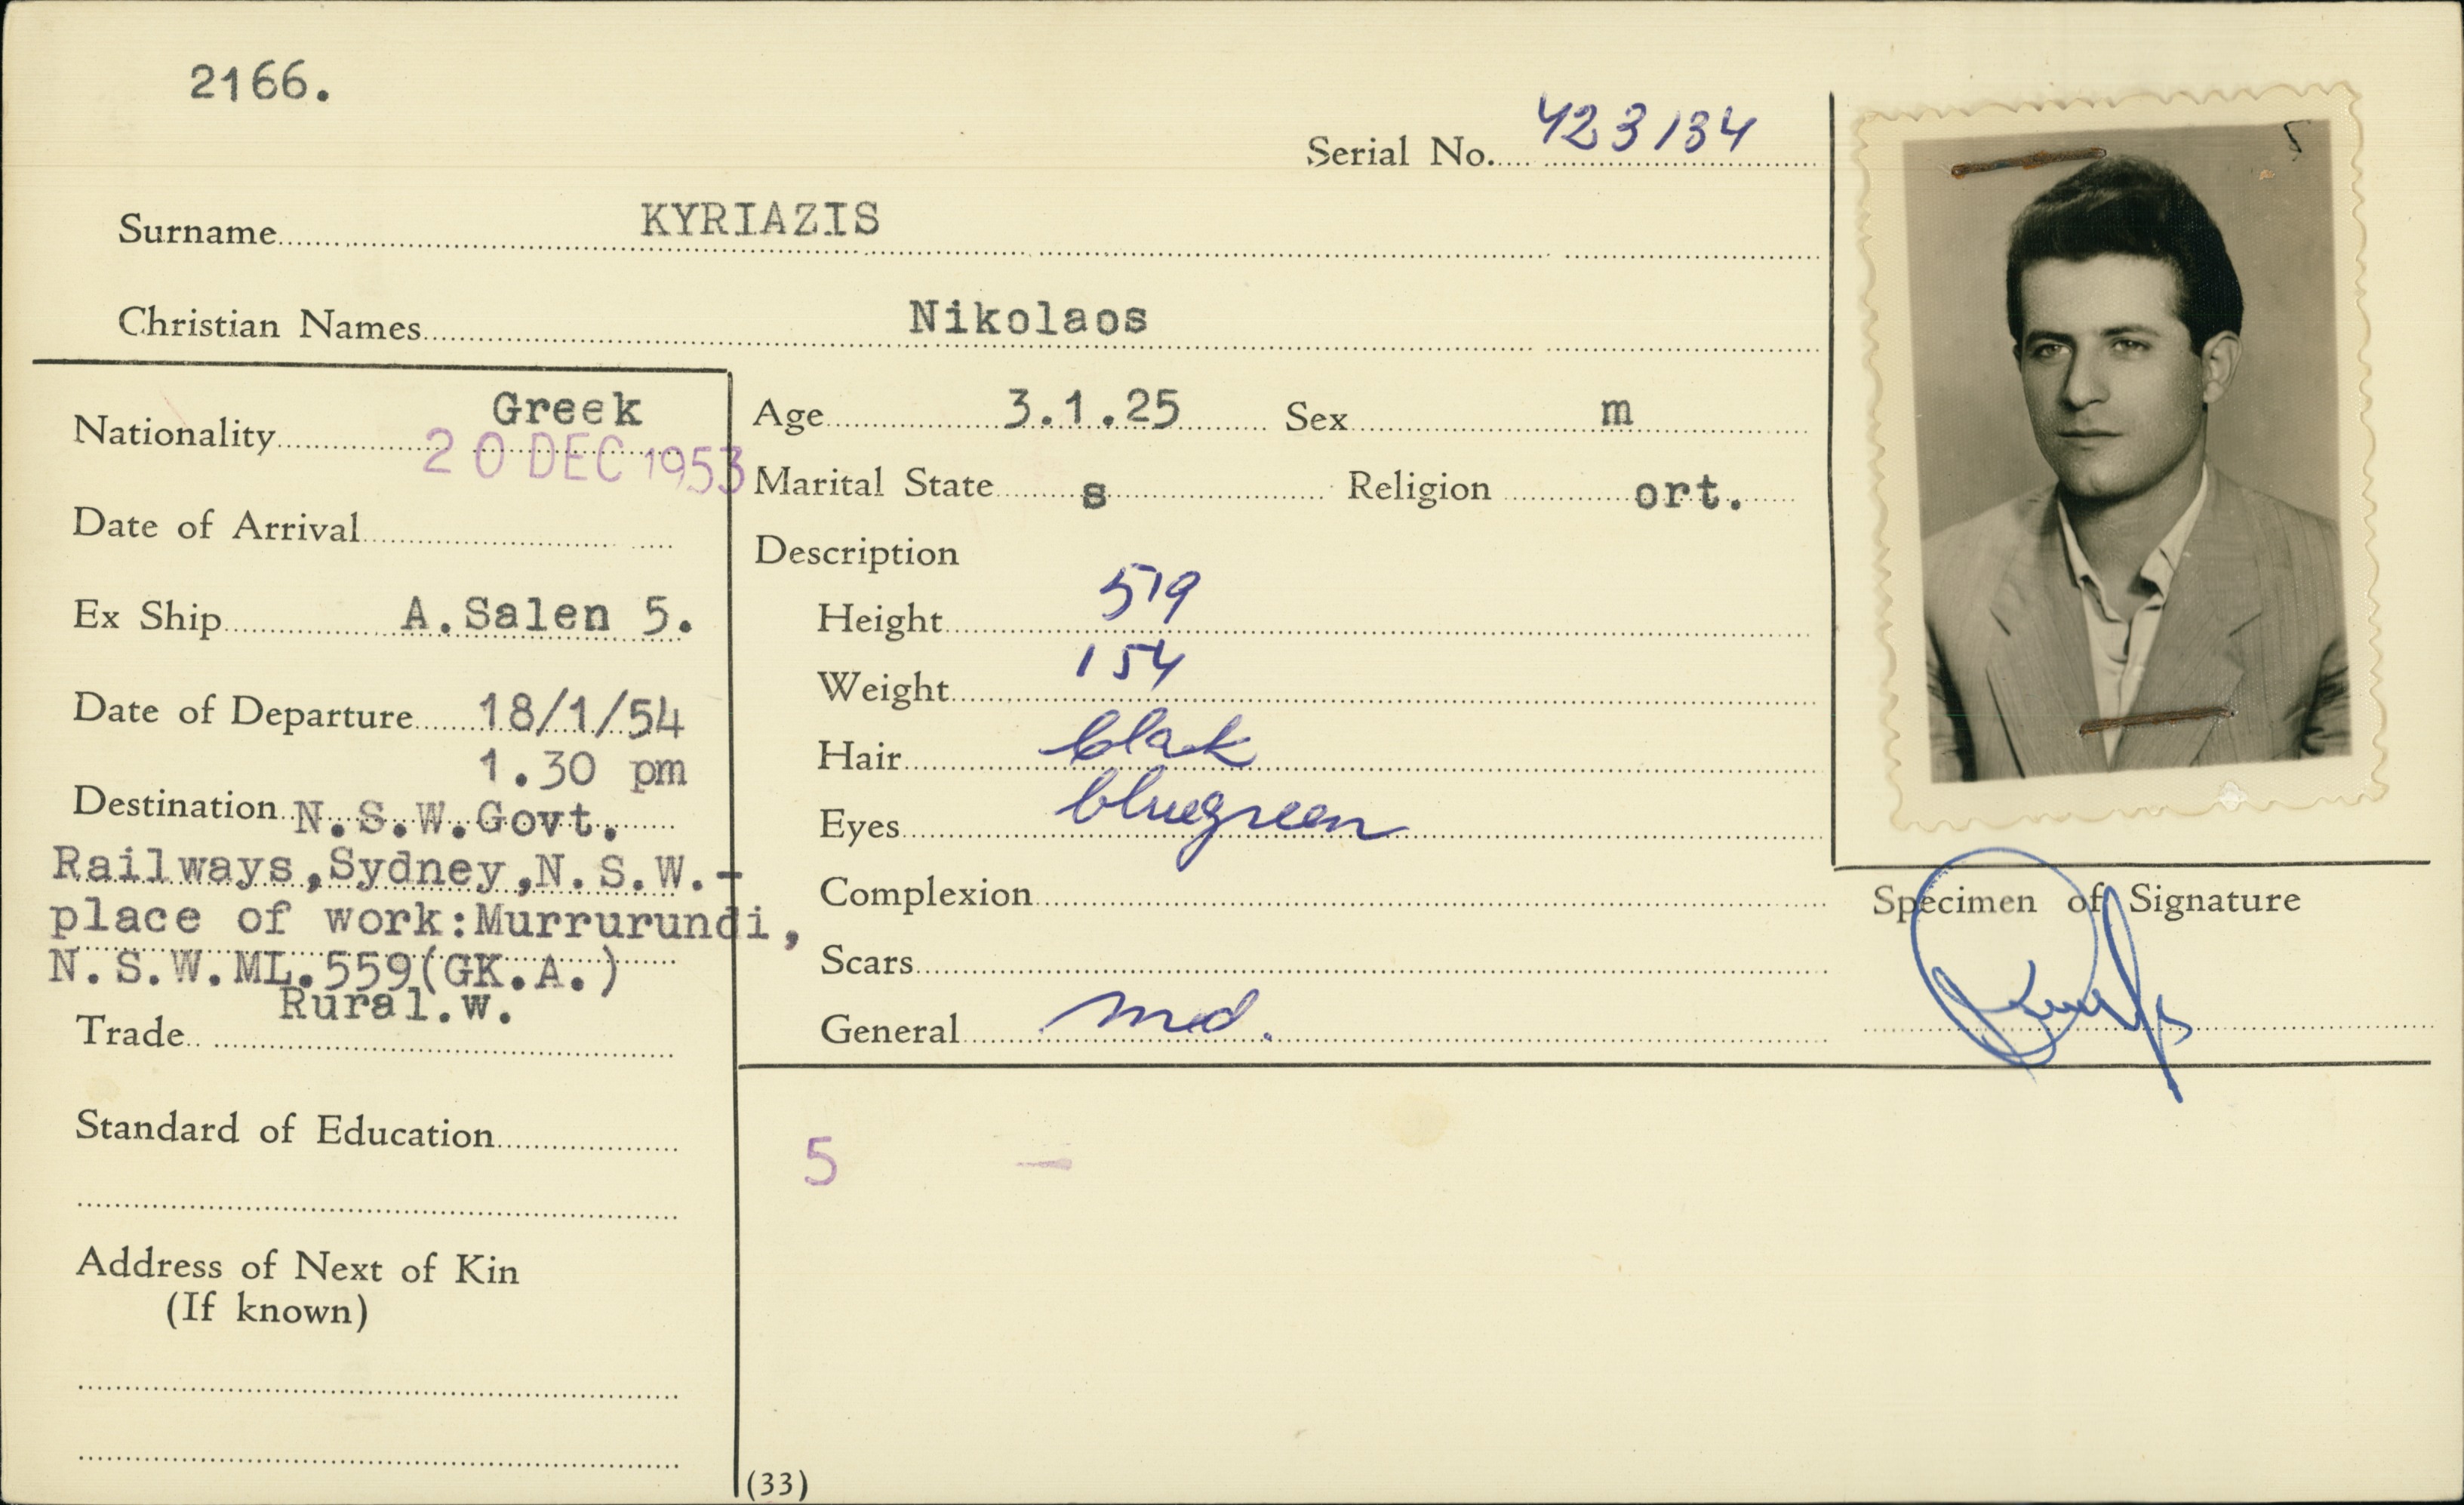 2166.
Serial No. 423134
Surname KYRIAZIS
Christian Names Nikolaos
Nationality Greek
20 DEC 1953
Date of Arrival
Ex Ship A.Salen 5.
Date of Departure 18/1/54
1.30 pm
Destination N.S.W.Govt.
Railways,Sydney,N.S.W.-
place of work:Murrurundi,
N.S.W.ML.559(GK.A.)
Rural.w.
Trade
Standard of Education
Address of Next of Kin
(If known)
Age 3.1.25 Sex m
Marital State s Religion ort.
Description
Height 519
Weight 154
Hair blak
Eyes bluegreen
Complexion
Scars
General med.
5
Specimen of Signature
5
(33)